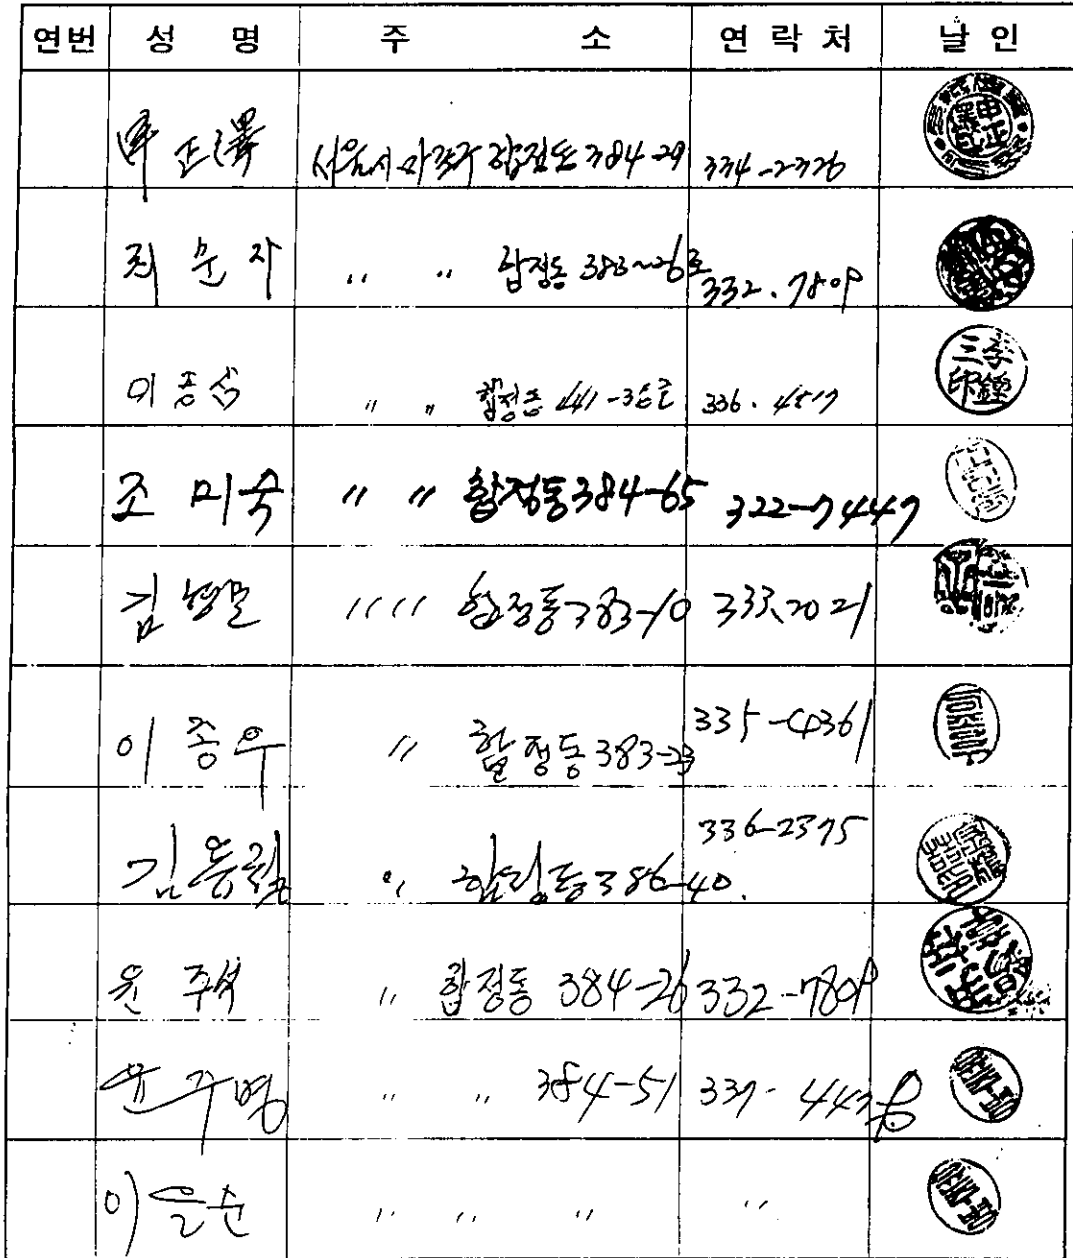 연번 성 명 주 소 연 락 처 날 인
申正澤 서울시 마포구 합정동 384-29 334-2326
최문자 〃 〃 합정동 383-26호 332.7809
이종삼 〃 〃 합정동 441-3 336.4517
조미숙 〃 〃 합정동 384-65 322-7447
김형문 〃 〃 합정동 383-10 333.2021
이종우 〃 합정동 383-23 335-4361
김동철 〃 합정동 386-40. 336-2375
윤주석 〃 합정동 384-26 332-7809
윤주명 〃 〃 384-51 337-443
이을순 〃 〃 〃 〃